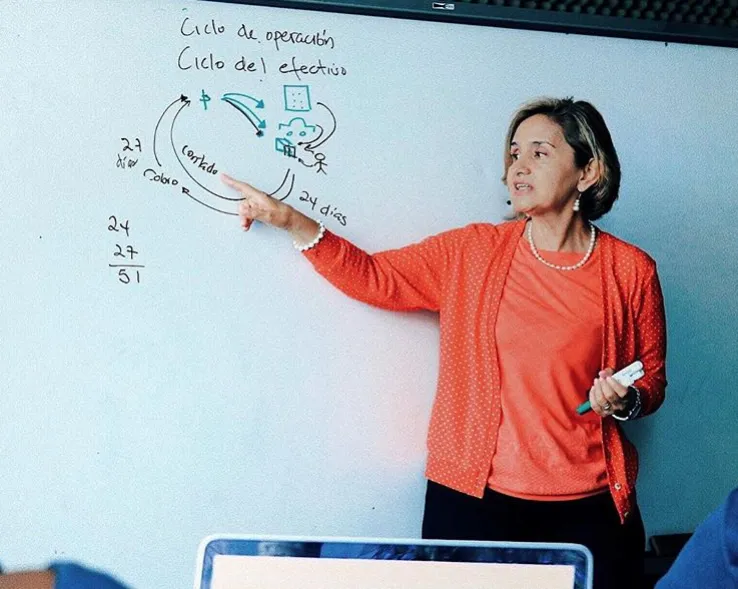 Ciclo de operación
Ciclo del efectivo
27
días
contado
Cobro
24 días
24
27
51